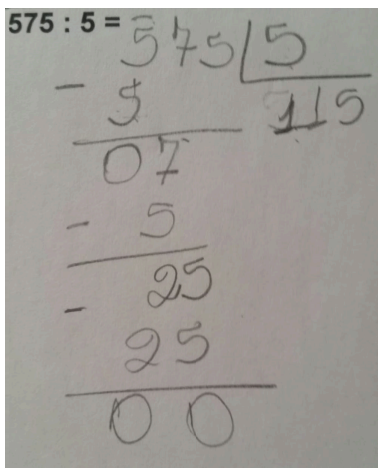 575 : 5 = 575 5
- 5 115
07
- 5
- 25
25
00